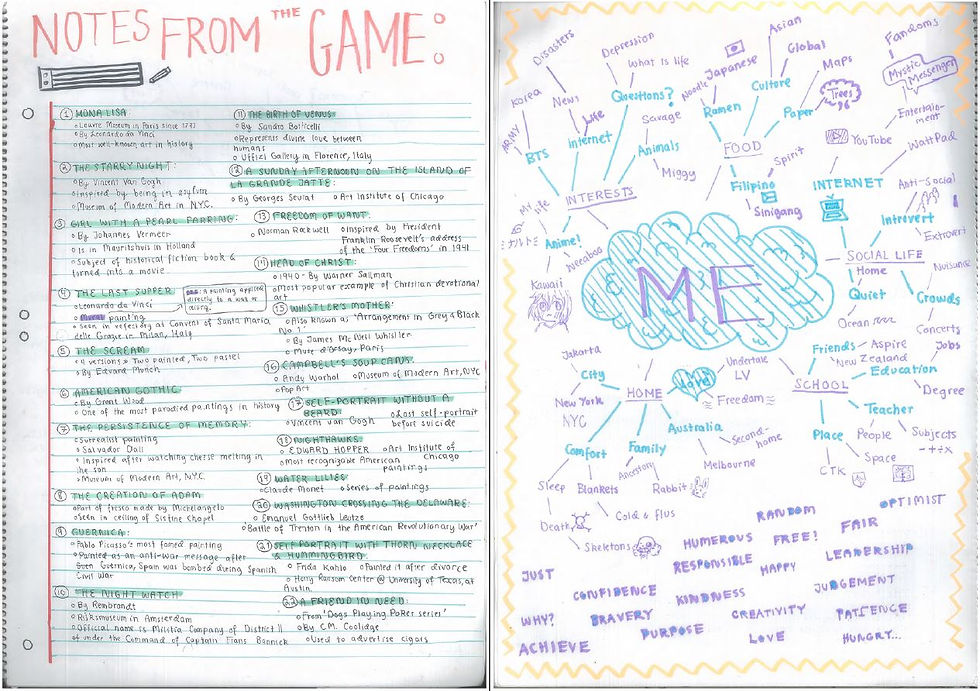 NOTES FROM THE GAME:
① MONA LISA:
Louvre Museum in Paris since 1797
By Leonardo da Vinci
Most well-known art in history
② THE STARRY NIGHT:
By Vincent Van Gogh
inspired by being in asylum
Museum of Modern Art in N.Y.C.
③ GIRL WITH A PEARL EARRING:
By Johannes Vermeer
Is in Mauritshuis in Holland
Subject of historical fiction book &
turned into a movie
④ THE LAST SUPPER
Leonardo da Vinci
Mural painting
a painting applied
directly to a wall or
ceiling.
Seen in refectory at Convent of Santa Maria
delle Grazie in Milan, Italy
⑤ THE SCREAM
4 versions → Two painted, Two pastel
By Edvard Munch
⑥ AMERICAN GOTHIC
By Grant Wood
One of the most parodied paintings in history
⑦ THE PERSISTENCE OF MEMORY:
Surrealist painting
Salvador Dali
Inspired after watching cheese melting in
the son
Museum of Modern Art, N.Y.C.
⑧ THE CREATION OF ADAM
Part of fresco made by Michelangelo
Seen in ceiling of Sistine Chapel
⑨ GUERNICA:
Pablo Picasso's most famed painting
Painted as an anti-war message after
Guernica, Spain was bombed during Spanish
Civil War
⑩ THE NIGHT WATCH
By Rembrandt
Rijksmuseum in Amsterdam
Official name is Militia Company of District II
under the Command of Captain Frans Banninck
⑪ THE BIRTH OF VENUS:
By Sandro Botticelli
Represents divine love between
humans
Uffizi Gallery in Florence, Italy
⑫ A SUNDAY AFTERNOON ON THE ISLAND OF
LA GRANDE JATTE:
By Georges Seurat Art Institute of Chicago
⑬ FREEDOM OF WANT.
Norman Rockwell Inspired by President
Franklin Roosevelt's address
of the 'Four Freedoms' in 1941
⑭ HEAD OF CHRIST:
1940 - By Warner Sallman
Most popular example of Christian devotional
art
⑮ WHISTLER'S MOTHER:
Also known as 'Arrangement in Grey & Black
No 1'
By James Mc Neil Whistler
Muse d'Orsay, Paris
⑯ CAMPBELL'S SOUP CANS.
Andy Warhol Museum of Modern Art, NYC
Pop Art
⑰ SELF-PORTRAIT WITHOUT A
BEARD:
Vincent van Gogh Last self-portrait
before suicide
⑱ NIGHTHAWKS:
EDWARD HOPPER Art Institute of
Chicago
most recognizable American
paintings
⑲ WATER LILIES:
Claude Monet Series of paintings
⑳ WASHINGTON CROSSING THE DELAWARE:
Emanuel Gottlieb Leutze
'Battle of Trenton in the American Revolutionary War'
㉑ SELF PORTRAIT WITH THORN NECKLACE
& HUMMINGBIRD.
Frida Kahlo Painted it after divorce
Harry Ransom Center @ University of Texas, at
Austin
㉒ A FRIEND IN NEED:
From 'Dogs Playing Poker series'
By C.M. Coolidge
Used to advertise cigars
ME
INTERESTS
BTS
Korea
ARMY
Internet
News
Disasters
Life
Questions?
Depression
What is life
Animals
Savage
Miggy
Anime!
My life
Weeaboo
Kawaii
FOOD
Ramen
Noodle
Japanese
Culture
Asian
Global
Paper
Maps
Trees
Filipino
Spirit
Sinigang
INTERNET
YouTube
Entertain-
ment
WattPad
Fandoms
Mystic
Messenger
SOCIAL LIFE
Introvert
Anti-Social
Extrovert
Home
Quiet
Ocean
Crowds
Nuisance
Concerts
SCHOOL
Friends
Aspire
New Zealand
Education
Jobs
Degree
Teacher
Subjects
- ÷ + x
People
Place
Space
CTK
HOME
City
Jakarta
New York
NYC
Undertale
LV
Freedom
Australia
Second-
home
Melbourne
Family
Ancestory
Rabbit
Comfort
Sleep
Blankets
Cold & flus
Death
Skeletons
RANDOM
OPTIMIST
HUMEROUS
FREE!
FAIR
JUST
RESPONSIBLE
HAPPY
LEADERSHIP
CONFIDENCE
KINDNESS
JUDGEMENT
WHY?
BRAVERY
CREATIVITY
PATIENCE
ACHIEVE
PURPOSE
LOVE
HUNGRY...